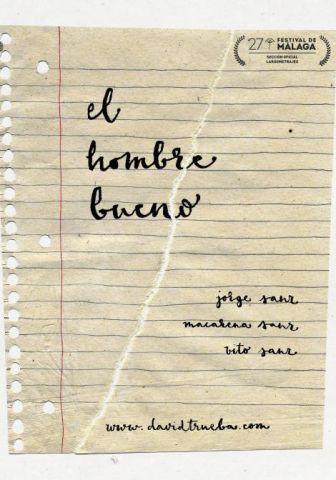 27 FESTIVAL DE
MÁLAGA
SECCIÓN OFICIAL
LARGOMETRAJES
el
hombre
bueno
jorge sanz
macarena sanz
vito sanz
www.davidtrueba.com